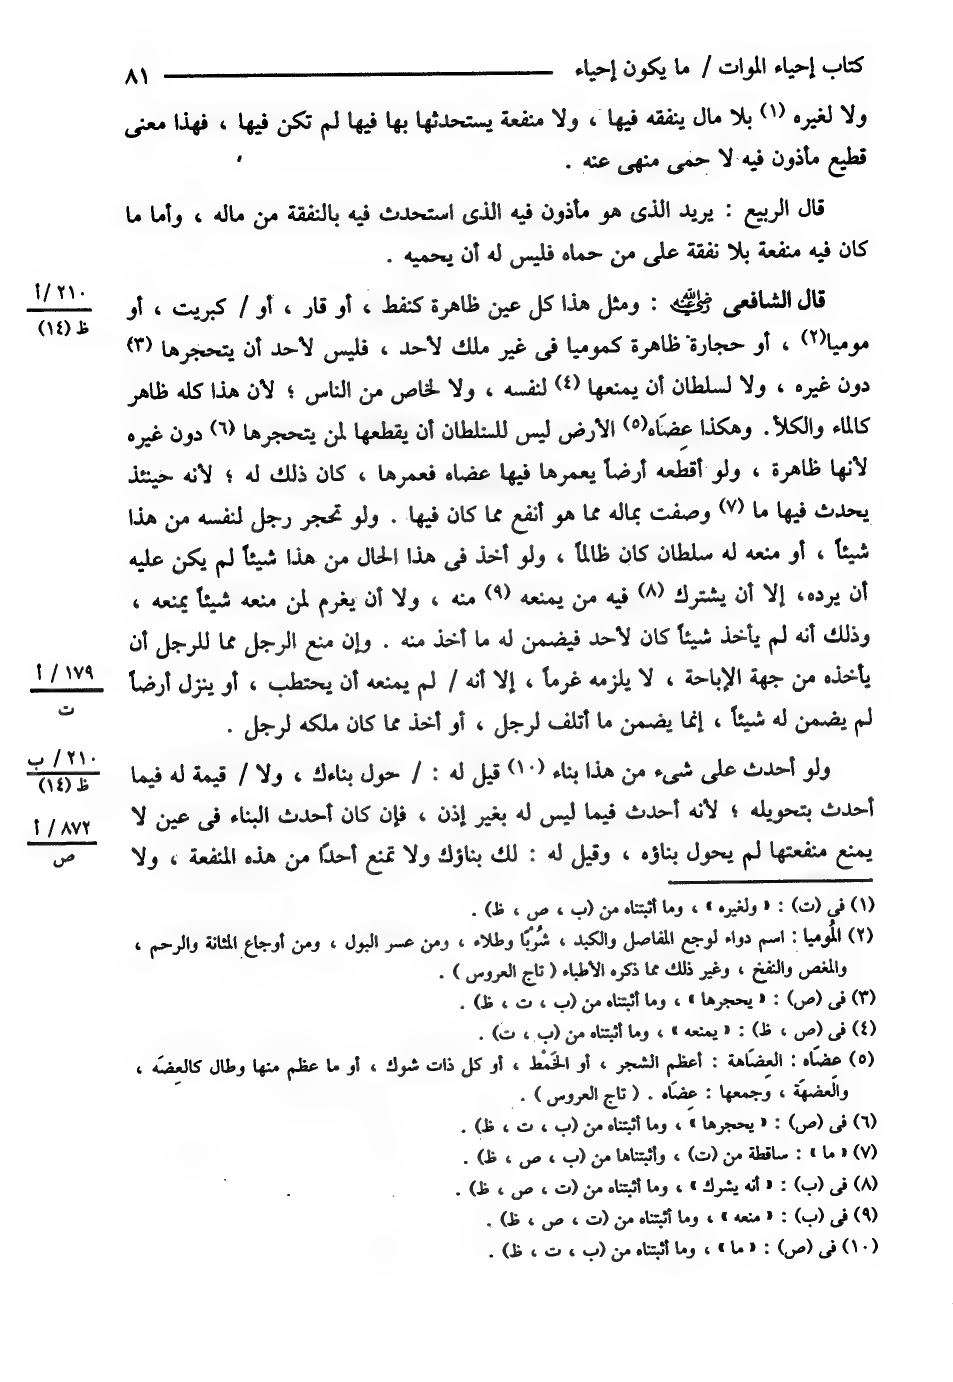 كتاب إحياء الموات / ما يكون إحياء ــــــــــــــــ ٨١
ولا لغيره (١) بلا مال ينفقه فيها ، ولا منفعة يستحدثها بها فيها لم تكن فيها ، فهذا معنى
قطيع مأذون فيه لا حمى منهى عنه .
قال الربيع : يريد الذى هو مأذون فيه الذى استحدث فيه بالنفقة من ماله ، وأما ما
كان فيه منفعة بلا نفقة على من حماه فليس له أن يحميه .
قال الشافعى رضي الله عنه : ومثل هذا كل عين ظاهرة كنفط ، أو قار ، أو / كبريت ، أو
٢١٠ /أ
ظ (١٤)
موميا(٢) ، أو حجارة ظاهرة كموميا فى غير ملك لأحد ، فليس لأحد أن يتحجرها (٣)
دون غيره ، ولا لسلطان أن يمنعها (٤) لنفسه ، ولا لخاص من الناس ؛ لأن هذا كله ظاهر
كالماء والكلأ . وهكذا عِضَاه(٥) الأرض ليس للسلطان أن يقطعها لمن يتحجرها (٦) دون غيره
لأنها ظاهرة ، ولو أقطعه أرضاً يعمرها فيها عضاه فعمرها ، كان ذلك له ؛ لأنه حينئذ
يحدث فيها ما (٧) وصفت بماله مما هو أنفع مما كان فيها . ولو تحجر رجل لنفسه من هذا
شيئاً ، أو منعه له سلطان كان ظالماً ، ولو أخذ فى هذا الحال من هذا شيئاً لم يكن عليه
أن يرده، إلا أن يشترك (٨) فيه من يمنعه (٩) منه ، ولا أن يغرم لمن منعه شيئاً يمنعه ،
وذلك أنه لم يأخذ شيئاً كان لأحد فيضمن له ما أخذ منه . وإن منع الرجل مما للرجل أن
يأخذه من جهة الإباحة ، لا يلزمه غرماً ، إلا أنه / لم يمنعه أن يحتطب ، أو ينزل أرضاً
١٧٩ / أ
ت
لم يضمن له شيئاً ، إنما يضمن ما أتلف لرجل ، أو أخذ مما كان ملكه لرجل .
ولو أحدث على شىء من هذا بناء (١٠) قيل له : / حول بناءك ، ولا / قيمة له فيما
٢١٠ / ب
ظ (١٤)
أحدث بتحويله ؛ لأنه أحدث فيما ليس له بغير إذن ، فإن كان أحدث البناء فى عين لا
٨٧٢ / أ
ص
يمنع منفعتها لم يحول بناؤه ، وقيل له : لك بناؤك ولا تمنع أحدًا من هذه المنفعة ، ولا
(١) فى (ت) : « ولغيره » ، وما أثبتناه من (ب ، ص ، ظ) .
(٢) المُوميا : اسم دواء لوجع المفاصل والكبد ، شُرْبًا وطلاء ، ومن عسر البول ، ومن أوجاع المثانة والرحم ،
والمغص والنفخ ، وغير ذلك مما ذكره الأطباء ( تاج العروس ) .
(٣) فى (ص) : « يحجرها » ، وما أثبتناه من (ب ، ت ، ظ) .
(٤) فى (ص ، ظ) : « يمنعه » ، وما أثبتناه من (ب ، ت) .
(٥) عِضَاه : العِضَاهة : أعظم الشجر ، أو الخَمْط ، أو كل ذات شوك ، أو ما عظم منها وطال كالعِضَه ،
والعِضهَة ، وجمعها : عِضَاه . ( تاج العروس ) .
(٦) فى (ص) : « يحجرها » ، وما أثبتناه من (ب ، ت ، ظ) .
(٧) « ما » : ساقطة من (ت) ، وأثبتناها من (ب ، ص ، ظ) .
(٨) فى (ب) : « أنه يشرك » ، وما أثبتناه من (ت ، ص ، ظ) .
(٩) فى (ب) : « منعه » ، وما أثبتناه من (ت ، ص ، ظ) .
(١٠) فى (ص) : « ما » ، وما أثبتناه من (ب ، ت ، ظ) .